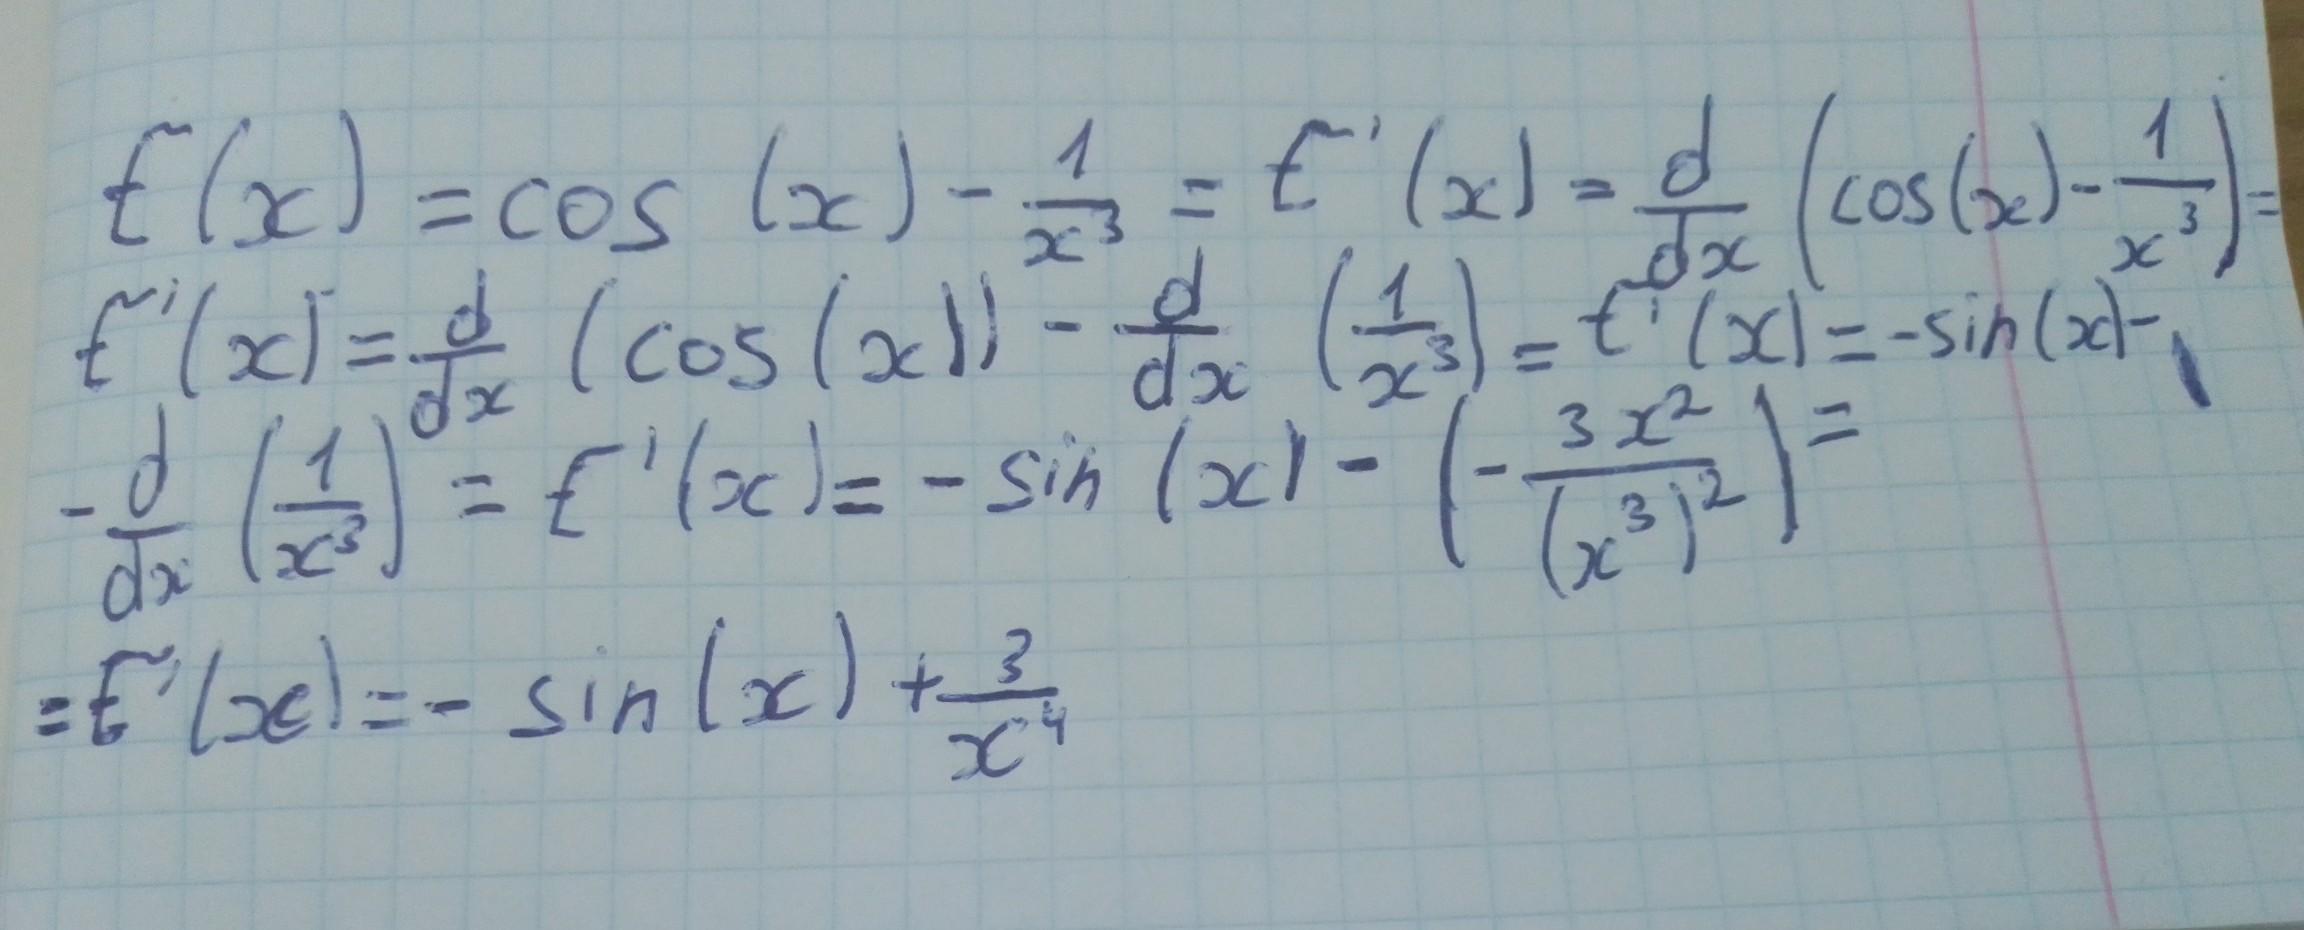 f(x) = cos (x) - 1/x³ = f'(x) = d/dx (cos(x) - 1/x³) =
f'(x) = d/dx (cos(x)) - d/dx (1/x³) = f'(x) = -sin(x) -
- d/dx (1/x³) = f'(x) = - sin (x) - (- 3x²/(x³)²) =
= f'(x) = - sin(x) + 3/x⁴